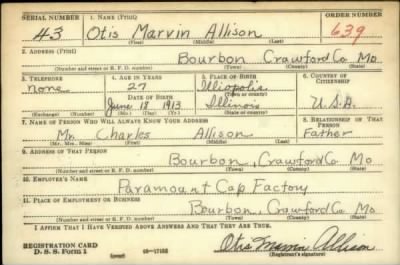 SERIAL NUMBER 1. NAME (Print) ORDER NUMBER
43 Otis Marvin Allison 639
(First) (Middle) (Last)
2. ADDRESS (Print)
Bourbon Crawford Co Mo.
(Number and street or R. F. D. number) (Town) (County) (State)
3. TELEPHONE 4. AGE IN YEARS 5. PLACE OF BIRTH 6. COUNTRY OF CITIZENSHIP
none 27 Illiopolis
DATE OF BIRTH (Town or county)
June 18 1913 Illinois U.S.A.
(Exchange) (Number) (Mo.) (Day) (Yr.) (State or country)
7. NAME OF PERSON WHO WILL ALWAYS KNOW YOUR ADDRESS 8. RELATIONSHIP OF THAT PERSON
Mr. Charles Allison Father
(Mr., Mrs., Miss) (First) (Middle) (Last)
9. ADDRESS OF THAT PERSON
Bourbon, Crawford Co Mo
(Number and street or R. F. D. number) (Town) (County) (State)
10. EMPLOYER'S NAME
Paramount Cap Factory
11. PLACE OF EMPLOYMENT OR BUSINESS
Bourbon, Crawford Co Mo
(Number and street or R. F. D. number) (Town) (County) (State)
I AFFIRM THAT I HAVE VERIFIED ABOVE ANSWERS AND THAT THEY ARE TRUE.
REGISTRATION CARD
D. S. S. Form 1 Otis Marvin Allison
(Registrant's signature)